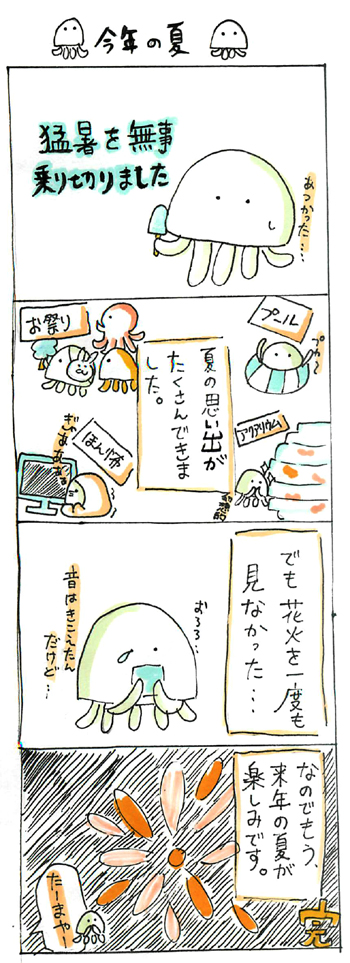 今年の夏
猛暑を無事
乗り切りました
あつかった…
お祭り
プール
プカ〜
夏の思い出が
たくさんできま
した。
ほん怖
ぎゃあああああ
アクアリウム
でも花火を一度も
見なかった…
おろろ…
音はきこえたん
だけど…
なのでもう、
来年の夏が
楽しみです。
たーまやー
完